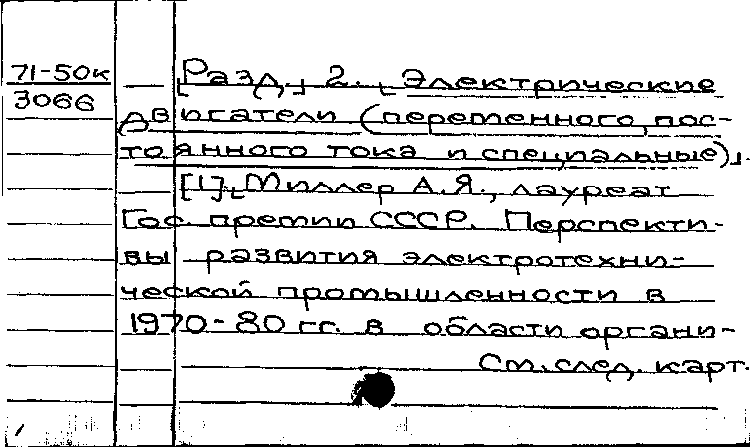 71-50к
3066
[Разд.] 2. [Электрические
двигатели (переменного, пос-
тоянного тока и специальные)].
[1]. [Миллер А.Я., лауреат
Гос. премии СССР. Перспекти-
вы развития электротехни-
ческой промышленности в
1970-80 гг. в области органи-
См. след. карт.